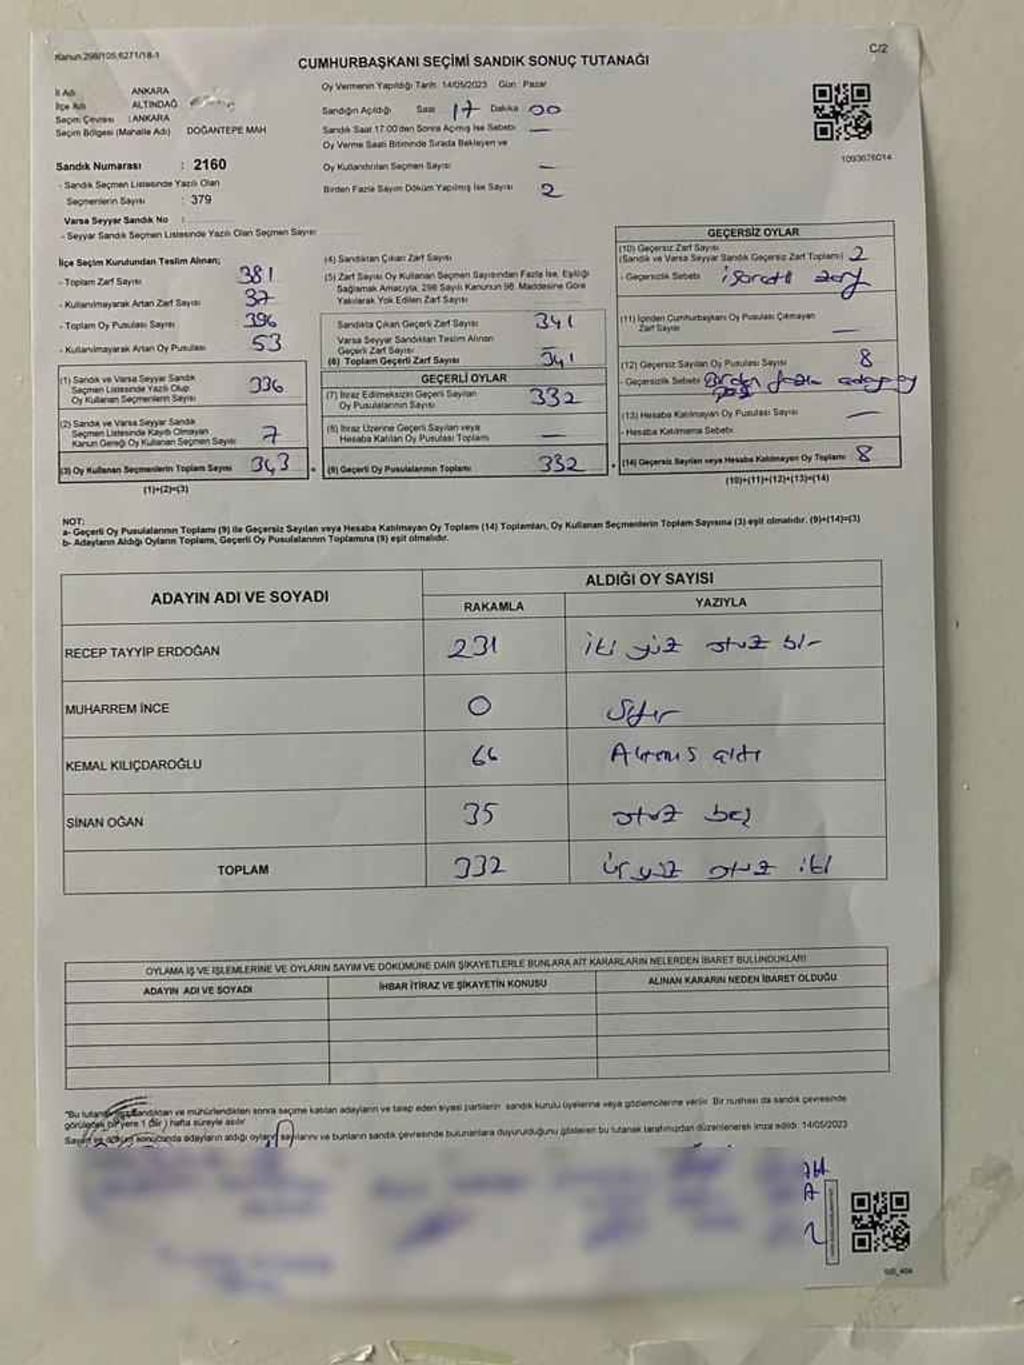 Kanun:298/105,6271/18-1
C/2
CUMHURBAŞKANI SEÇİMİ SANDIK SONUÇ TUTANAĞI
İl Adı ANKARA
İlçe Adı ALTINDAĞ
Seçim Çevresi : ANKARA
Seçim Bölgesi (Mahalle Adı) DOĞANTEPE MAH
Sandık Numarası : 2160
- Sandık Seçmen Listesinde Yazılı Olan
Seçmenlerin Sayısı : 379
Varsa Seyyar Sandık No :
- Seyyar Sandık Seçmen Listesinde Yazılı Olan Seçmen Sayısı:
Oy Vermenin Yapıldığı Tarih: 14/05/2023 Gün: Pazar
Sandığın Açıldığı Saat 17 Dakika 00
Sandık Saat 17:00'den Sonra Açılmış İse Sebebi: —
Oy Verme Saati Bitiminde Sırada Bekleyen ve
Oy Kullandırılan Seçmen Sayısı: —
Birden Fazla Sayım Döküm Yapılmış İse Sayısı 2
1093676014
İlçe Seçim Kurulundan Teslim Alınan;
- Toplam Zarf Sayısı : 381
- Kullanılmayarak Artan Zarf Sayısı : 37
- Toplam Oy Pusulası Sayısı : 396
- Kullanılmayarak Artan Oy Pusulası : 53
(1) Sandık ve Varsa Seyyar Sandık
Seçmen Listesinde Yazılı Olup
Oy Kullanan Seçmenlerin Sayısı 336
(2) Sandık ve Varsa Seyyar Sandık
Seçmen Listesinde Kayıtlı Olmayan
Kanun Gereği Oy Kullanan Seçmen Sayısı 7
(3) Oy Kullanan Seçmenlerin Toplam Sayısı 343
(1)+(2)=(3)
(4) Sandıktan Çıkan Zarf Sayısı
(5) Zarf Sayısı Oy Kullanan Seçmen Sayısından Fazla İse, Eşitliği
Sağlamak Amacıyla, 298 Sayılı Kanunun 98. Maddesine Göre
Yakılarak Yok Edilen Zarf Sayısı : —
Sandıkta Çıkan Geçerli Zarf Sayısı 341
Varsa Seyyar Sandıktan Teslim Alınan
Geçerli Zarf Sayısı —
(6) Toplam Geçerli Zarf Sayısı 341
GEÇERLİ OYLAR
(7) İtiraz Edilmeksizin Geçerli Sayılan
Oy Pusulalarının Sayısı 332
(8) İtiraz Üzerine Geçerli Sayılan veya
Hesaba Katılan Oy Pusulası Toplamı —
(9) Geçerli Oy Pusulalarının Toplamı 332
GEÇERSİZ OYLAR
(10) Geçersiz Zarf Sayısı
(Sandık ve Varsa Seyyar Sandık Geçersiz Zarf Toplamı) 2
- Geçersizlik Sebebi işaretli zarf
(11) İçinden Cumhurbaşkanı Oy Pusulası Çıkmayan
Zarf Sayısı —
(12) Geçersiz Sayılan Oy Pusulası Sayısı 8
- Geçersizlik Sebebi Birden fazla adaya oy
(13) Hesaba Katılmayan Oy Pusulası Sayısı —
- Hesaba Katılmama Sebebi:
(14) Geçersiz Sayılan veya Hesaba Katılmayan Oy Toplamı 8
(10)+(11)+(12)+(13)=(14)
NOT:
a- Geçerli Oy Pusulalarının Toplamı (9) ile Geçersiz Sayılan veya Hesaba Katılmayan Oy Toplamı (14) Toplamları, Oy Kullanan Seçmenlerin Toplam Sayısına (3) eşit olmalıdır. (9)+(14)=(3)
b- Adayların Aldığı Oyların Toplamı, Geçerli Oy Pusulalarının Toplamına (9) eşit olmalıdır.
ADAYIN ADI VE SOYADI ALDIĞI OY SAYISI
RAKAMLA YAZIYLA
RECEP TAYYİP ERDOĞAN 231 iki yüz otuz bir
MUHARREM İNCE 0 Sıfır
KEMAL KILIÇDAROĞLU 66 Altmış altı
SİNAN OĞAN 35 otuz beş
TOPLAM 332 üç yüz otuz iki
OYLAMA İŞ VE İŞLEMLERİNE VE OYLARIN SAYIM VE DÖKÜMÜNE DAİR ŞİKAYETLERLE BUNLARA AİT KARARLARIN NELERDEN İBARET BULUNDUKLARI
ADAYIN ADI VE SOYADI İHBAR İTİRAZ VE ŞİKAYETİN KONUSU ALINAN KARARIN NEDEN İBARET OLDUĞU
"Bu tutanak sandıktan ve mühürlendikten sonra seçime katılan adayların ve talep eden siyasi partilerin sandık kurulu üyelerine veya gözlemcilerine verilir. Bir nüshası da sandık çevresinde
görülecek bir yere 1 (bir) hafta süreyle asılır
Sayım ve döküm sonucunda adayların aldığı oyların sayılarını ve bunların sandık çevresinde bulunanlara duyurulduğunu gösteren bu tutanak tarafımızdan düzenlenerek imza edildi. 14/05/2023